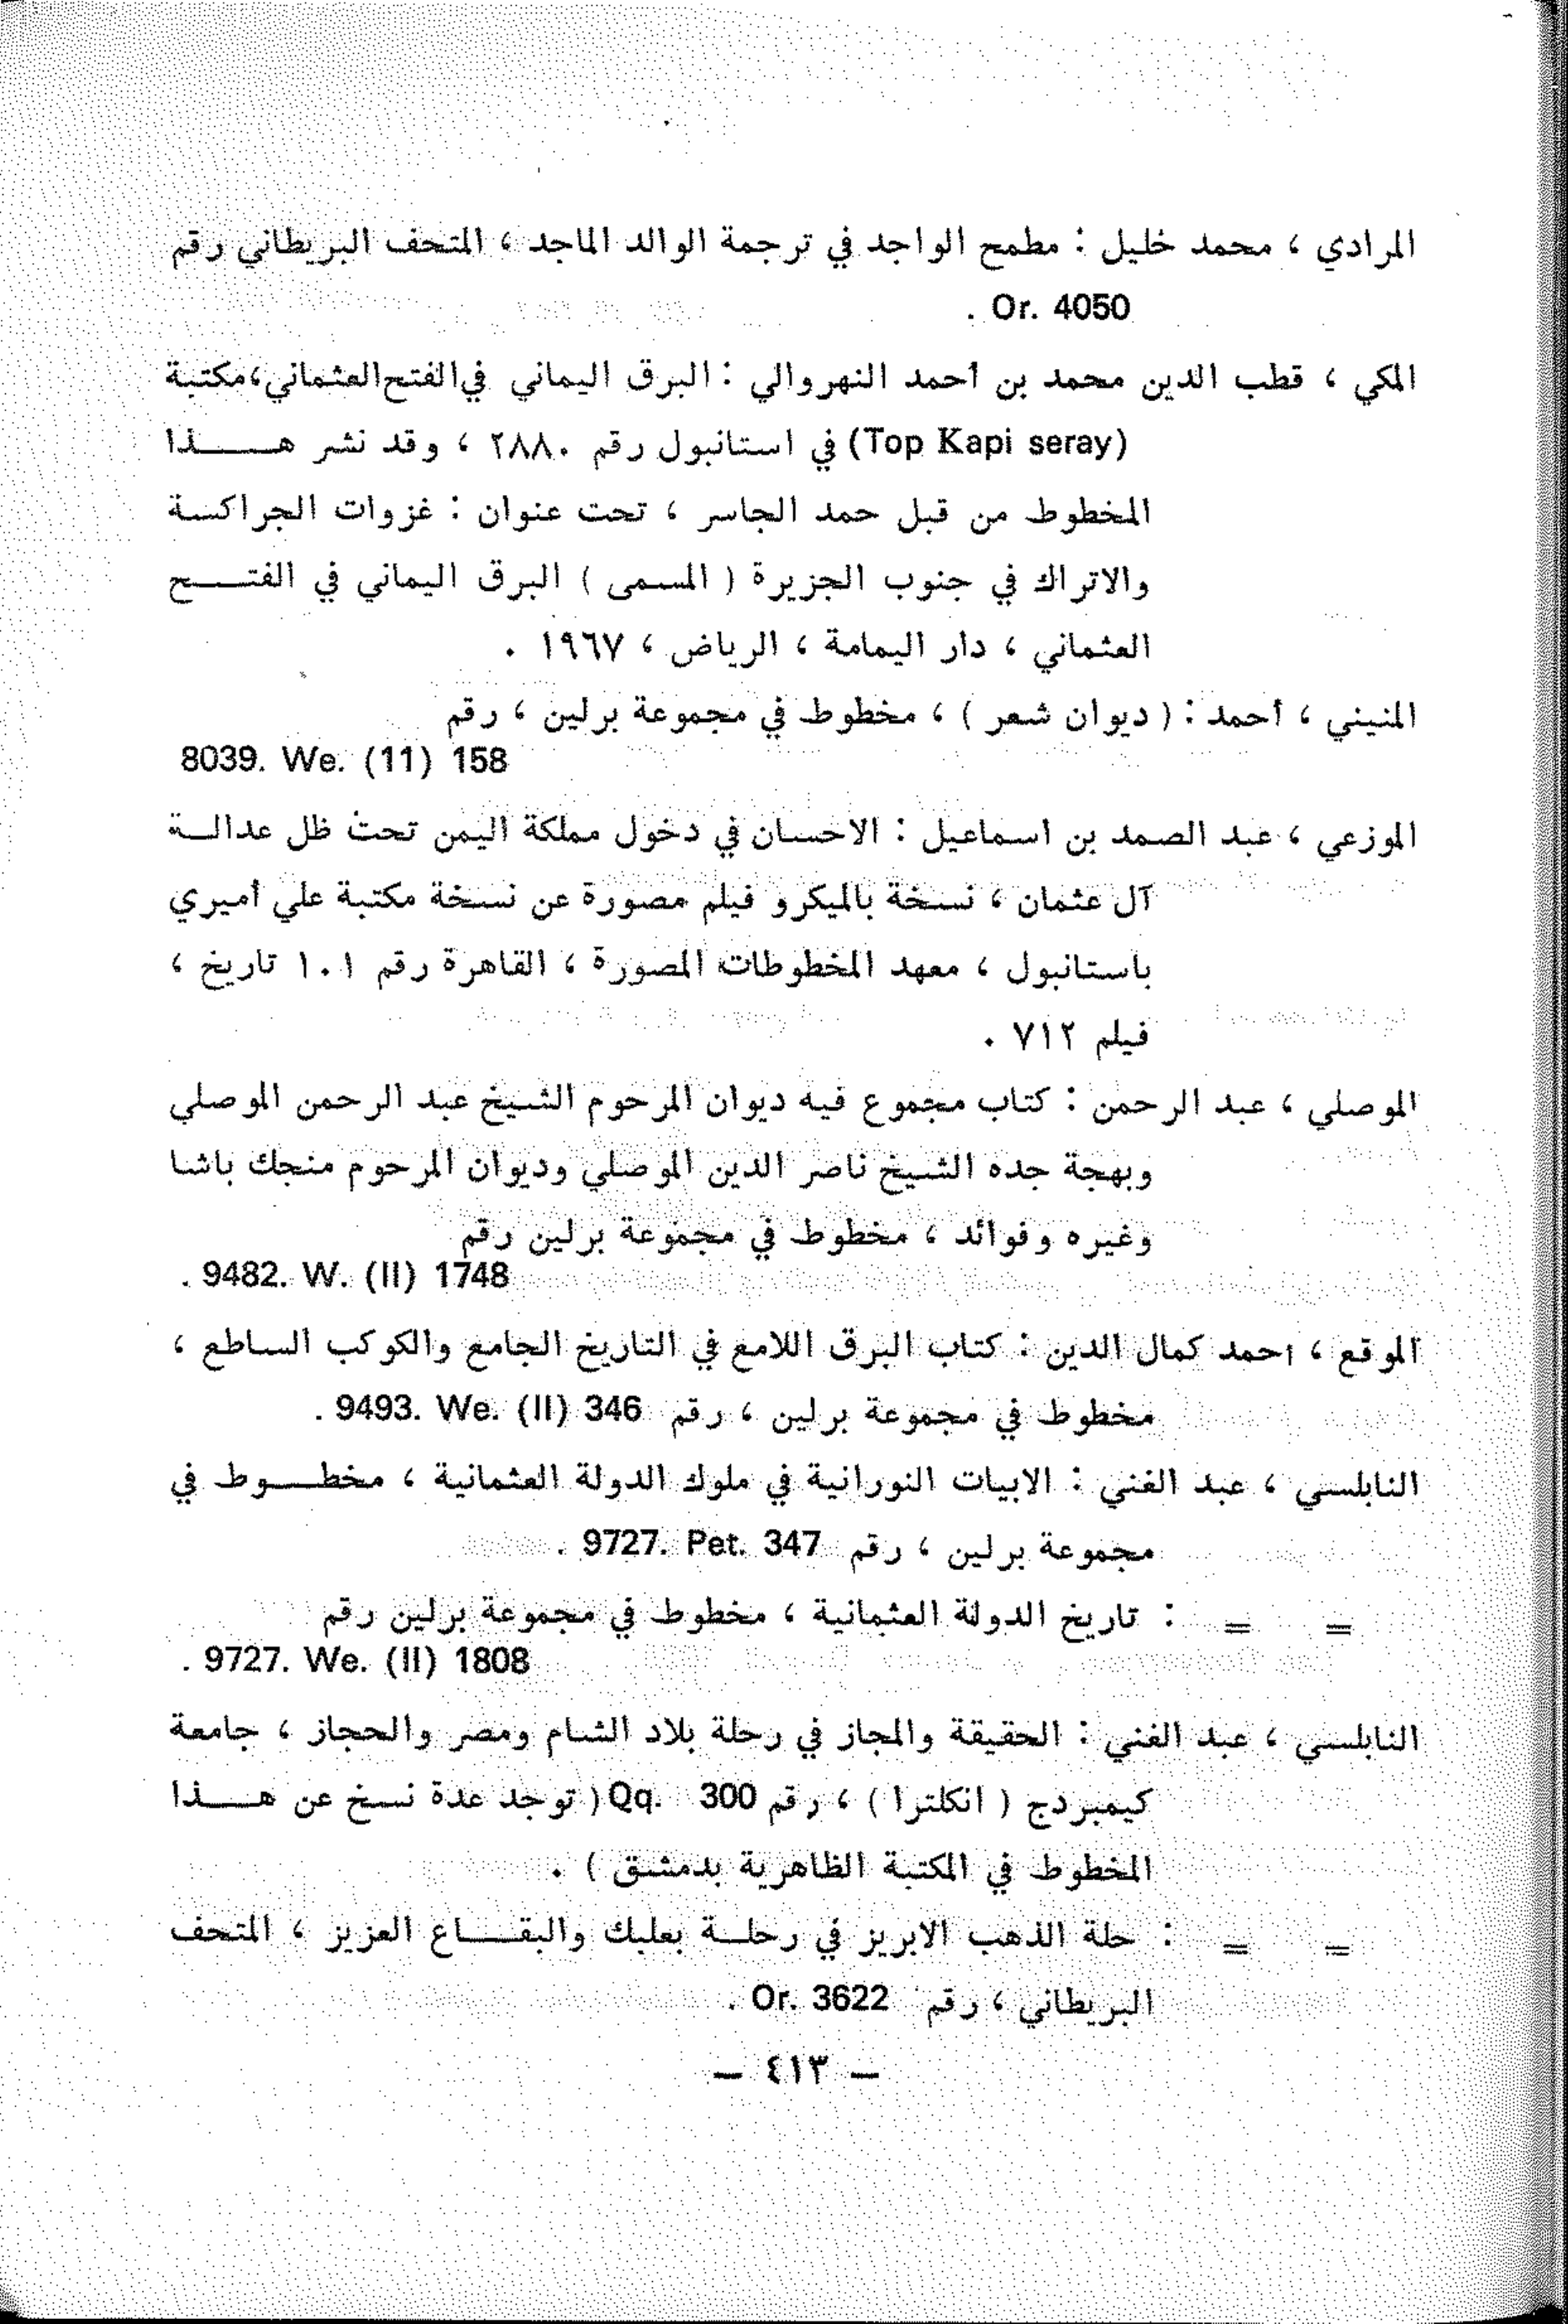 المرادي ، محمد خليل : مطمح الواجد في ترجمة الوالد الماجد ، المتحف البريطاني رقم
Or. 4050 .
المكي ، قطب الدين محمد بن أحمد النهروالي : البرق اليماني في الفتح العثماني، مكتبة
(Top Kapi seray) في استانبول رقم ٢٨٨٠ ، وقد نشر هــــذا
المخطوط من قبل حمد الجاسر ، تحت عنوان : غزوات الجراكسة
والاتراك في جنوب الجزيرة ( المسمى ) البرق اليماني في الفتــــح
العثماني ، دار اليمامة ، الرياض ، ١٩٦٧ .
المنيني ، أحمد : ( ديوان شعر ) ، مخطوط في مجموعة برلين ، رقم
8039. We. (11) 158
الموزعي ، عبد الصمد بن اسماعيل : الاحسان في دخول مملكة اليمن تحت ظل عدالــة
آل عثمان ، نسخة بالميكرو فيلم مصورة عن نسخة مكتبة علي أميري
باستانبول ، معهد المخطوطات المصورة ، القاهرة رقم ١٠١ تاريخ ،
فيلم ٧١٢ .
الموصلي ، عبد الرحمن : كتاب مجموع فيه ديوان المرحوم الشيخ عبد الرحمن الموصلي
وبهجة جده الشيخ ناصر الدين الموصلي وديوان المرحوم منجك باشا
وغيره وفوائد ، مخطوط في مجموعة برلين رقم
9482. W. (II) 1748 .
الموقع ، احمد كمال الدين : كتاب البرق اللامع في التاريخ الجامع والكوكب الساطع ،
مخطوط في مجموعة برلين ، رقم 9493. We. (II) 346 .
النابلسي ، عبد الغني : الابيات النورانية في ملوك الدولة العثمانية ، مخطــــوط في
مجموعة برلين ، رقم 9727. Pet. 347 .
= = : تاريخ الدولة العثمانية ، مخطوط في مجموعة برلين رقم
9727. We. (II) 1808 .
النابلسي ، عبد الغني : الحقيقة والمجاز في رحلة بلاد الشام ومصر والحجاز ، جامعة
كيمبردج ( انكلترا ) ، رقم Qq. 300 ( توجد عدة نسخ عن هــــذا
المخطوط في المكتبة الظاهرية بدمشق ) .
= = : حلة الذهب الابريز في رحلــة بعلبك والبقـــاع العزيز ، المتحف
البريطاني ، رقم Or. 3622 .
— ٤١٣ —